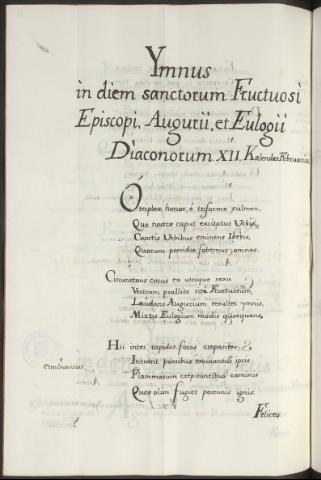 Ymnus
in diem sanctorum Fructuosi
Episcopi, Augurii, et Eulogii
Diaconorum XII. Kalendas Februarias
O triplex honor, ó triforme culmen,
Quo nostrę caput excitatur Urbis,
Cunctis Urbibus eminens Iberis,
Quorum omnes.
Circunstans corus ex utroque sexu
Vestrum psallite rite Fructuosum,
Laudans Augurium resultet ymnis,
Mixtus Eulogium modis coęquans.
Hii inter rapidos focos crepantes
Intrant ipsis
Flammarum crepitantibus caminis
Quos olim fugiet perennis ignis.
Felices.